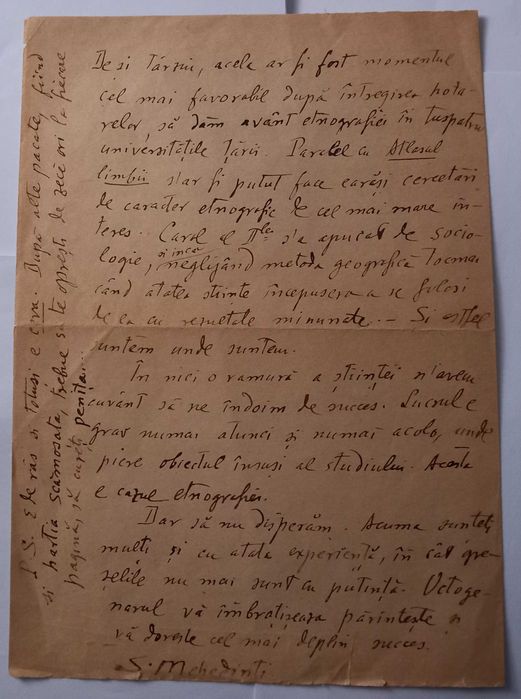 De si târziu, acele ar fi fost momentul
cel mai favorabil după întregirea hota-
relor, să dăm avânt etnografiei în tuspatru
universitățile țării. Paralel cu Atlasul
limbii s'ar fi putut face earăși cercetări
de caracter etnografic de cel mai mare in-
teres. Carol al IIlea s'a apucat de socio-
logie, și încă neglijând metoda geografică tocmai
cand atatea stiinte începusera a se folosi
de ea cu rezultate minunate. - Si astfel
suntem unde suntem.
In nici o ramură a științei n'avem
cuvânt să ne îndoim de succes. Lucrul e
grav numai atunci și numai acolo, unde
piere obiectul însuși al studiului. Acesta
e cazul etnografiei.
Dar să nu disperăm. Acuma sunteți
multi și cu atata experiență, în cât gre-
șelile nu mai sunt cu putință. Octoge-
narul vă îmbrațișeaza părintește și
vă dorește cel mai deplin succes.
S. Mehedinți
P.S. E de râs si totuși e così. După alte pacate, fiind
si hartia scămoșata, trebue sa te oprești de zece ori la fiecare
pagină, să cureți penița...